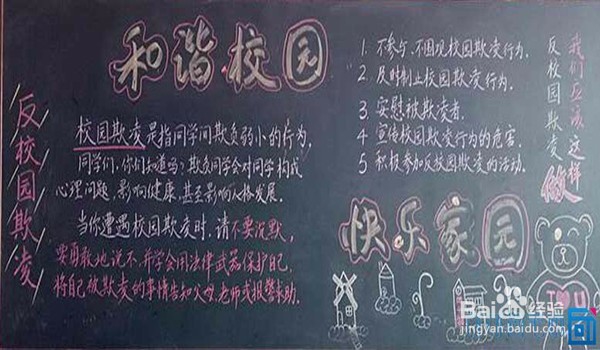 和谐校园
反校园欺凌
校园欺凌是指同学间欺负弱小的行为,
同学们,你们知道吗:欺负同学会对同学构成
心理问题,影响健康,甚至影响人格发展.
当你遭遇校园欺凌时.请不要沉默,
要勇敢地说不.并学会用法律武器保护自己.
将自己被欺凌的事情告知父母.老师或报警求助.
1. 不参与.不围观校园欺凌行为.
2. 及时制止校园欺凌行为.
3. 安慰被欺凌者.
4. 宣传校园欺凌行为的危害.
5. 积极参加反校园欺凌的活动.
反校园欺凌
我们应该这样
做
快乐家园
I ♥ U
Baidu经验
jingyan.baidu.com